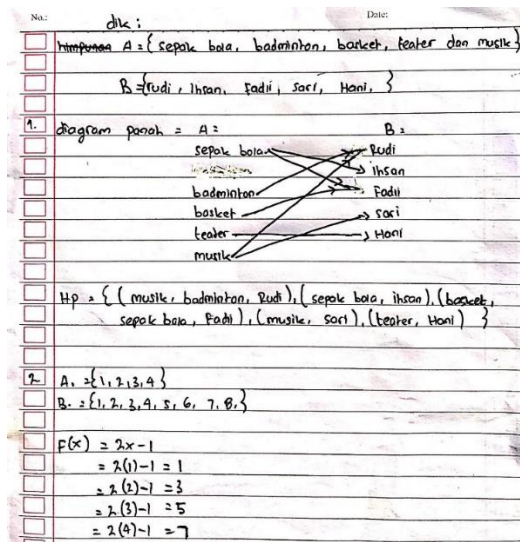 No.: Date:
dik :
himpunan A = { sepak bola, badminton, basket, teater dan musik }
B = {rudi, ihsan, Fadil, sari, Hani, }
1. diagram panah = A : B :
sepak bola Rudi
ihsan
badminton Fadil
basket sari
teater Hani
musik
Hp = { ( musik, badminton, Rudi ), ( sepak bola, ihsan ), (basket,
sepak bola, Fadil ), ( musik, sari ), (teater, Hani) }
2 A. = {1, 2, 3, 4}
B. = {1, 2, 3, 4, 5, 6, 7, 8, }
F(x) = 2x - 1
= 2(1) - 1 = 1
= 2(2) - 1 = 3
= 2(3) - 1 = 5
= 2(4) - 1 = 7